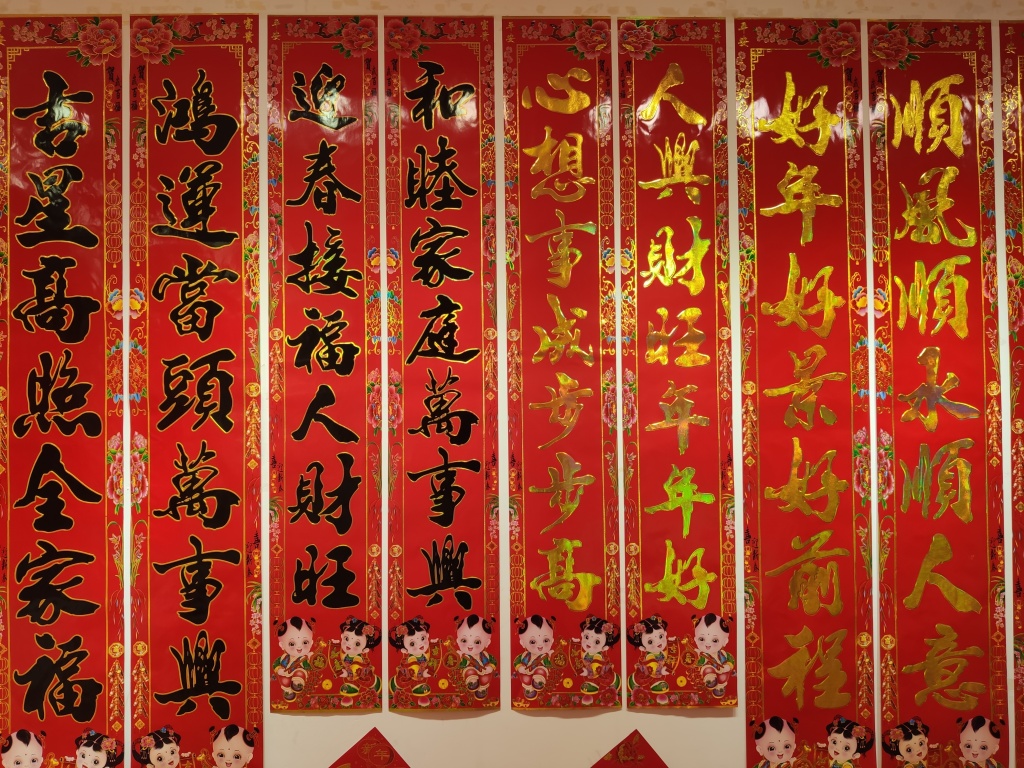 順風順水順人意
好年好景好前程
人興財旺年年好
心想事成步步髙
和睦家庭萬事興
迎春接福人財旺
鴻運當頭萬事興
吉星髙照全家福